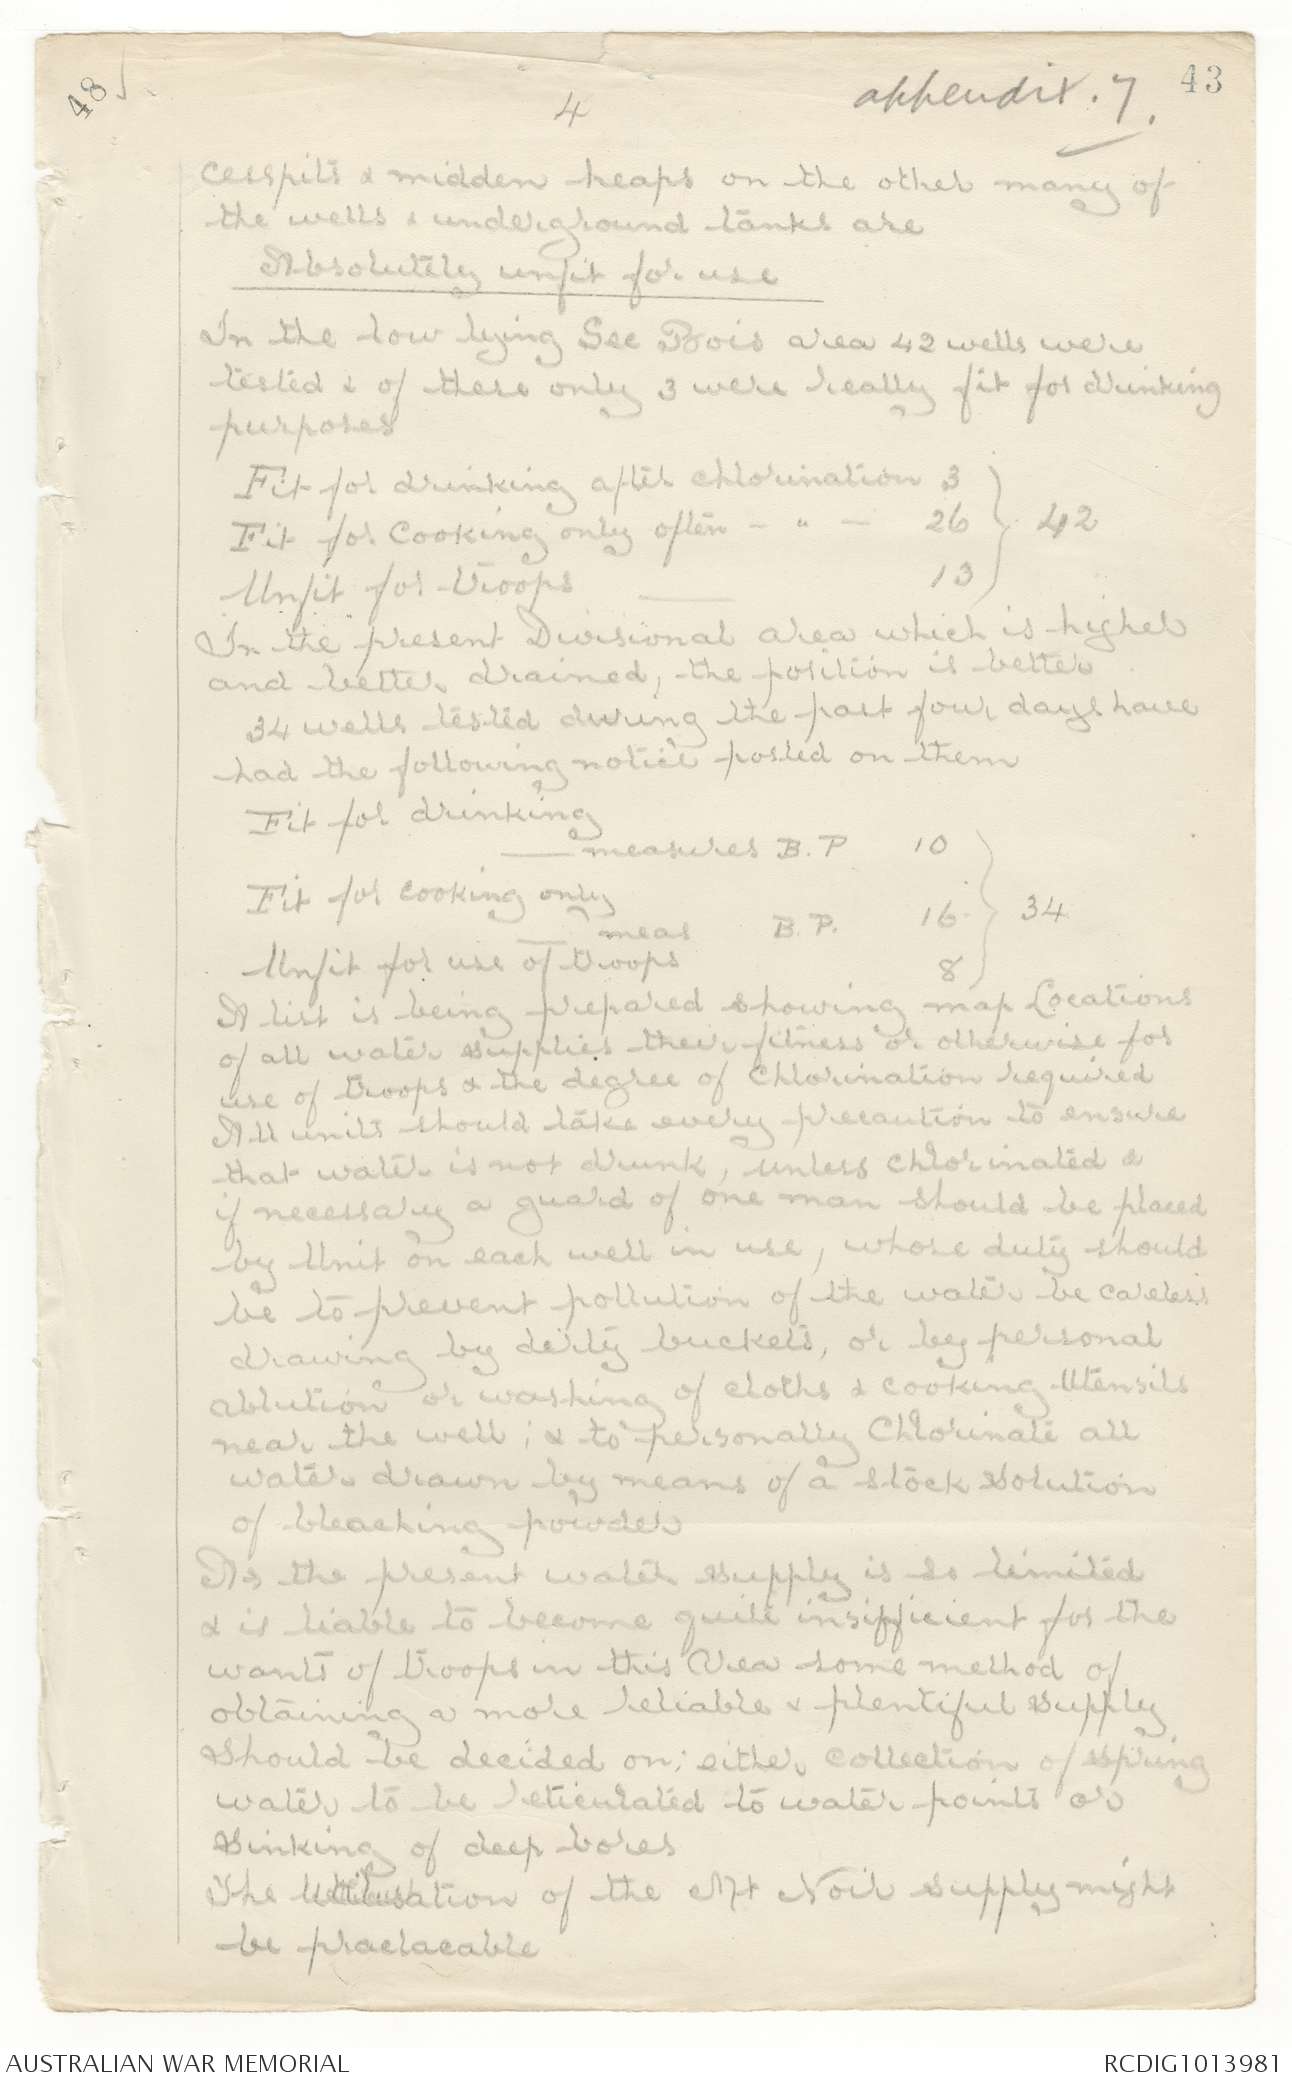 48
4
appendix. 7.
43
cesspits & midden heaps on the other many of
the wells & underground tanks are
Absolutely unfit for use
In the low lying Sec Bois area 42 wells were
tested & of these only 3 were really fit for drinking
purposes
Fit for drinking after chlorination 3
Fit for Cooking only often - " - 26 } 42
Unfit for troops 13
In the present Divisional area which is higher
and better drained, the position is better
34 wells tested during the past four days have
had the following notice posted on them
Fit for drinking
— measures B.P 10
Fit for cooking only
— meas B.P. 16 } 34
Unfit for use of troops 8
A list is being prepared showing map Locations
of all water supplies their fitness or otherwise for
use of troops & the degree of Chlorination required
All units should take every precaution to ensure
that water is not drunk, unless chlorinated &
if necessary a guard of one man should be placed
by Unit on each well in use, whose duty should
be to prevent pollution of the water be careless
drawing by dirty buckets, or by personal
ablution or washing of cloths & cooking Utensils
near the well; & to personally Chlorinate all
water drawn by means of a stock solution
of bleaching powder
As the present water supply is so limited
& is liable to become quite insifficient for the
wants of troops in this Area some method of
obtaining a more reliable & plentiful supply
should be decided on; either collection of spring
water to be reticulated to water points or
sinking of deep bores
The utilisation of the Mt Noir supply might
be practacable
AUSTRALIAN WAR MEMORIAL
RCDIG1013981